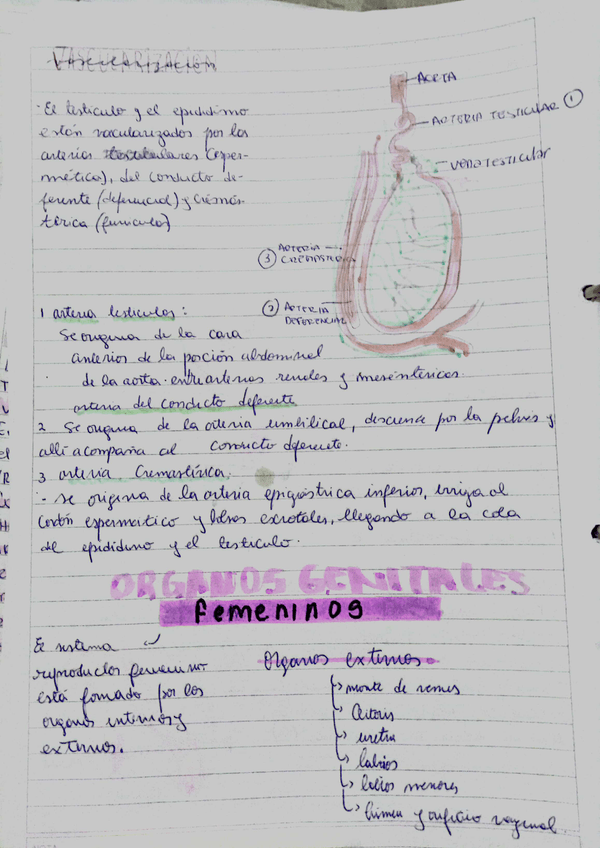 VASCULARIZACIÓN
· El testiculo y el epididimo
están vascularizados por las
arterias testiculares (esper-
méticas), del conducto de-
ferente (deferencial) y cremás-
térica (funiculos)
AORTA
ARTERIA TESTICULAR ①
VENA TESTICULAR
③ ARTERIA
CREMASTER
② ARTERIA
DEFERENCIAL
1 arteria testiculos:
Se origina de la cara
anterios de la poción abdominal
de la aorta. entre arterias renales y mesentéricas.
arteria del conducto deferente
2 Se origina de la arteria umbilical, desciende por la pelvis y
alli acompaña al conducto deferente.
3 arteria Cremastérica.
- se origina de la arteria epigástrica inferios, irriga al
Cordón espermatico y bolsas escrotales, llegando a la cola
del epididimo y el testiculo.
ORGANOS GENITALES
Femeninos
El sistema
reproductos femenino
está formado por los
organos internos y
externos.
Organos externos.
monte de venus
Clitoris
uretra
labios
labios menores
himen y orificio vaginal.